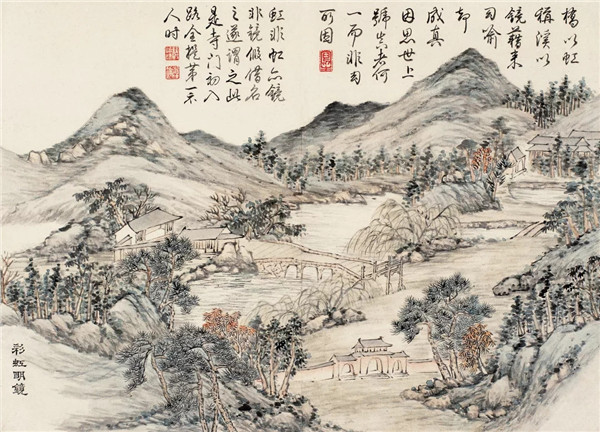 橋以虹
稱溪以
鏡藉來
喻
却
成真
因思世上
號真者何
一而非
虹非虹亦鏡
非鏡假借名
之遂謂之此
是寺門初入
路全提第一示
人时
彩虹明鏡